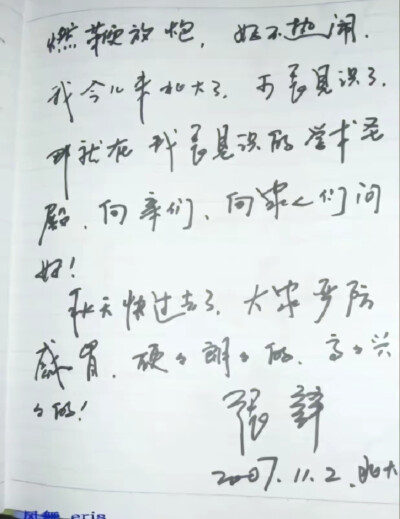 燃鞭放炮，好不热闹.
我今儿来北大了，可长见识了.
那就在我长见识的学术圣
殿、向亲们、向家人们问
好！
秋天快过去了，大家严防
感冒，硬々朗々的、高々兴
々的！
張辛
2007.11.2.北大
eris